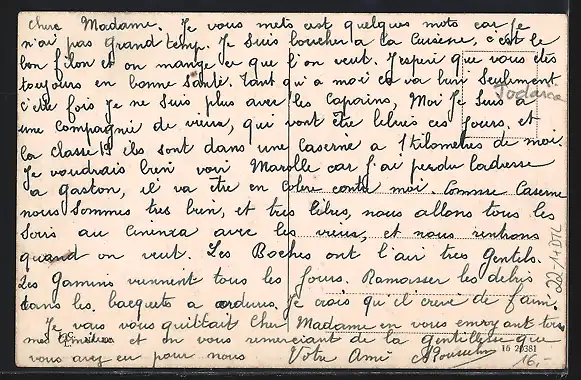 Cher Madame. Je vous mets cest quelques mots car je
n'ai pas grand temp. Je suis boucher a la Cuisene, c'est le
bon filon et on mange ce que l'on veut. J'esperi que vous êtes
toujours en bonne santé. Tant qui a moi ca va bien Seulement
c'ête fois Je ne suis plus avec les Capains, Moi Je suis a
une compagnie de vieux, qui vont être lebiés ces Jours. et
la classe 13 ils sont dans une Caserne a 1 Kilometres de moi.
Je voudrais bien voir Marolle car j'ai perdu ladresse
a Gaston, il va être en Colere contr moi. Comme Caserne
nous sommes tres bien, et tres libres, nous allons tous les
soirs au Cinenza avec les vieux, et nous rentrons
quand on veut. Les Boches ont l'air tres Gentils.
Les Gamins viennent tous les Jours. Ramasser les debris
dans les bacquets a ordures, Je crois qu'il creve de faim.
Je vais vous quittait Cher Madame en vous envoyant tous
mes et on vous remerciant de la gentillesse que
vous avez eu pour nous Votre Ami
16 20381
16,-